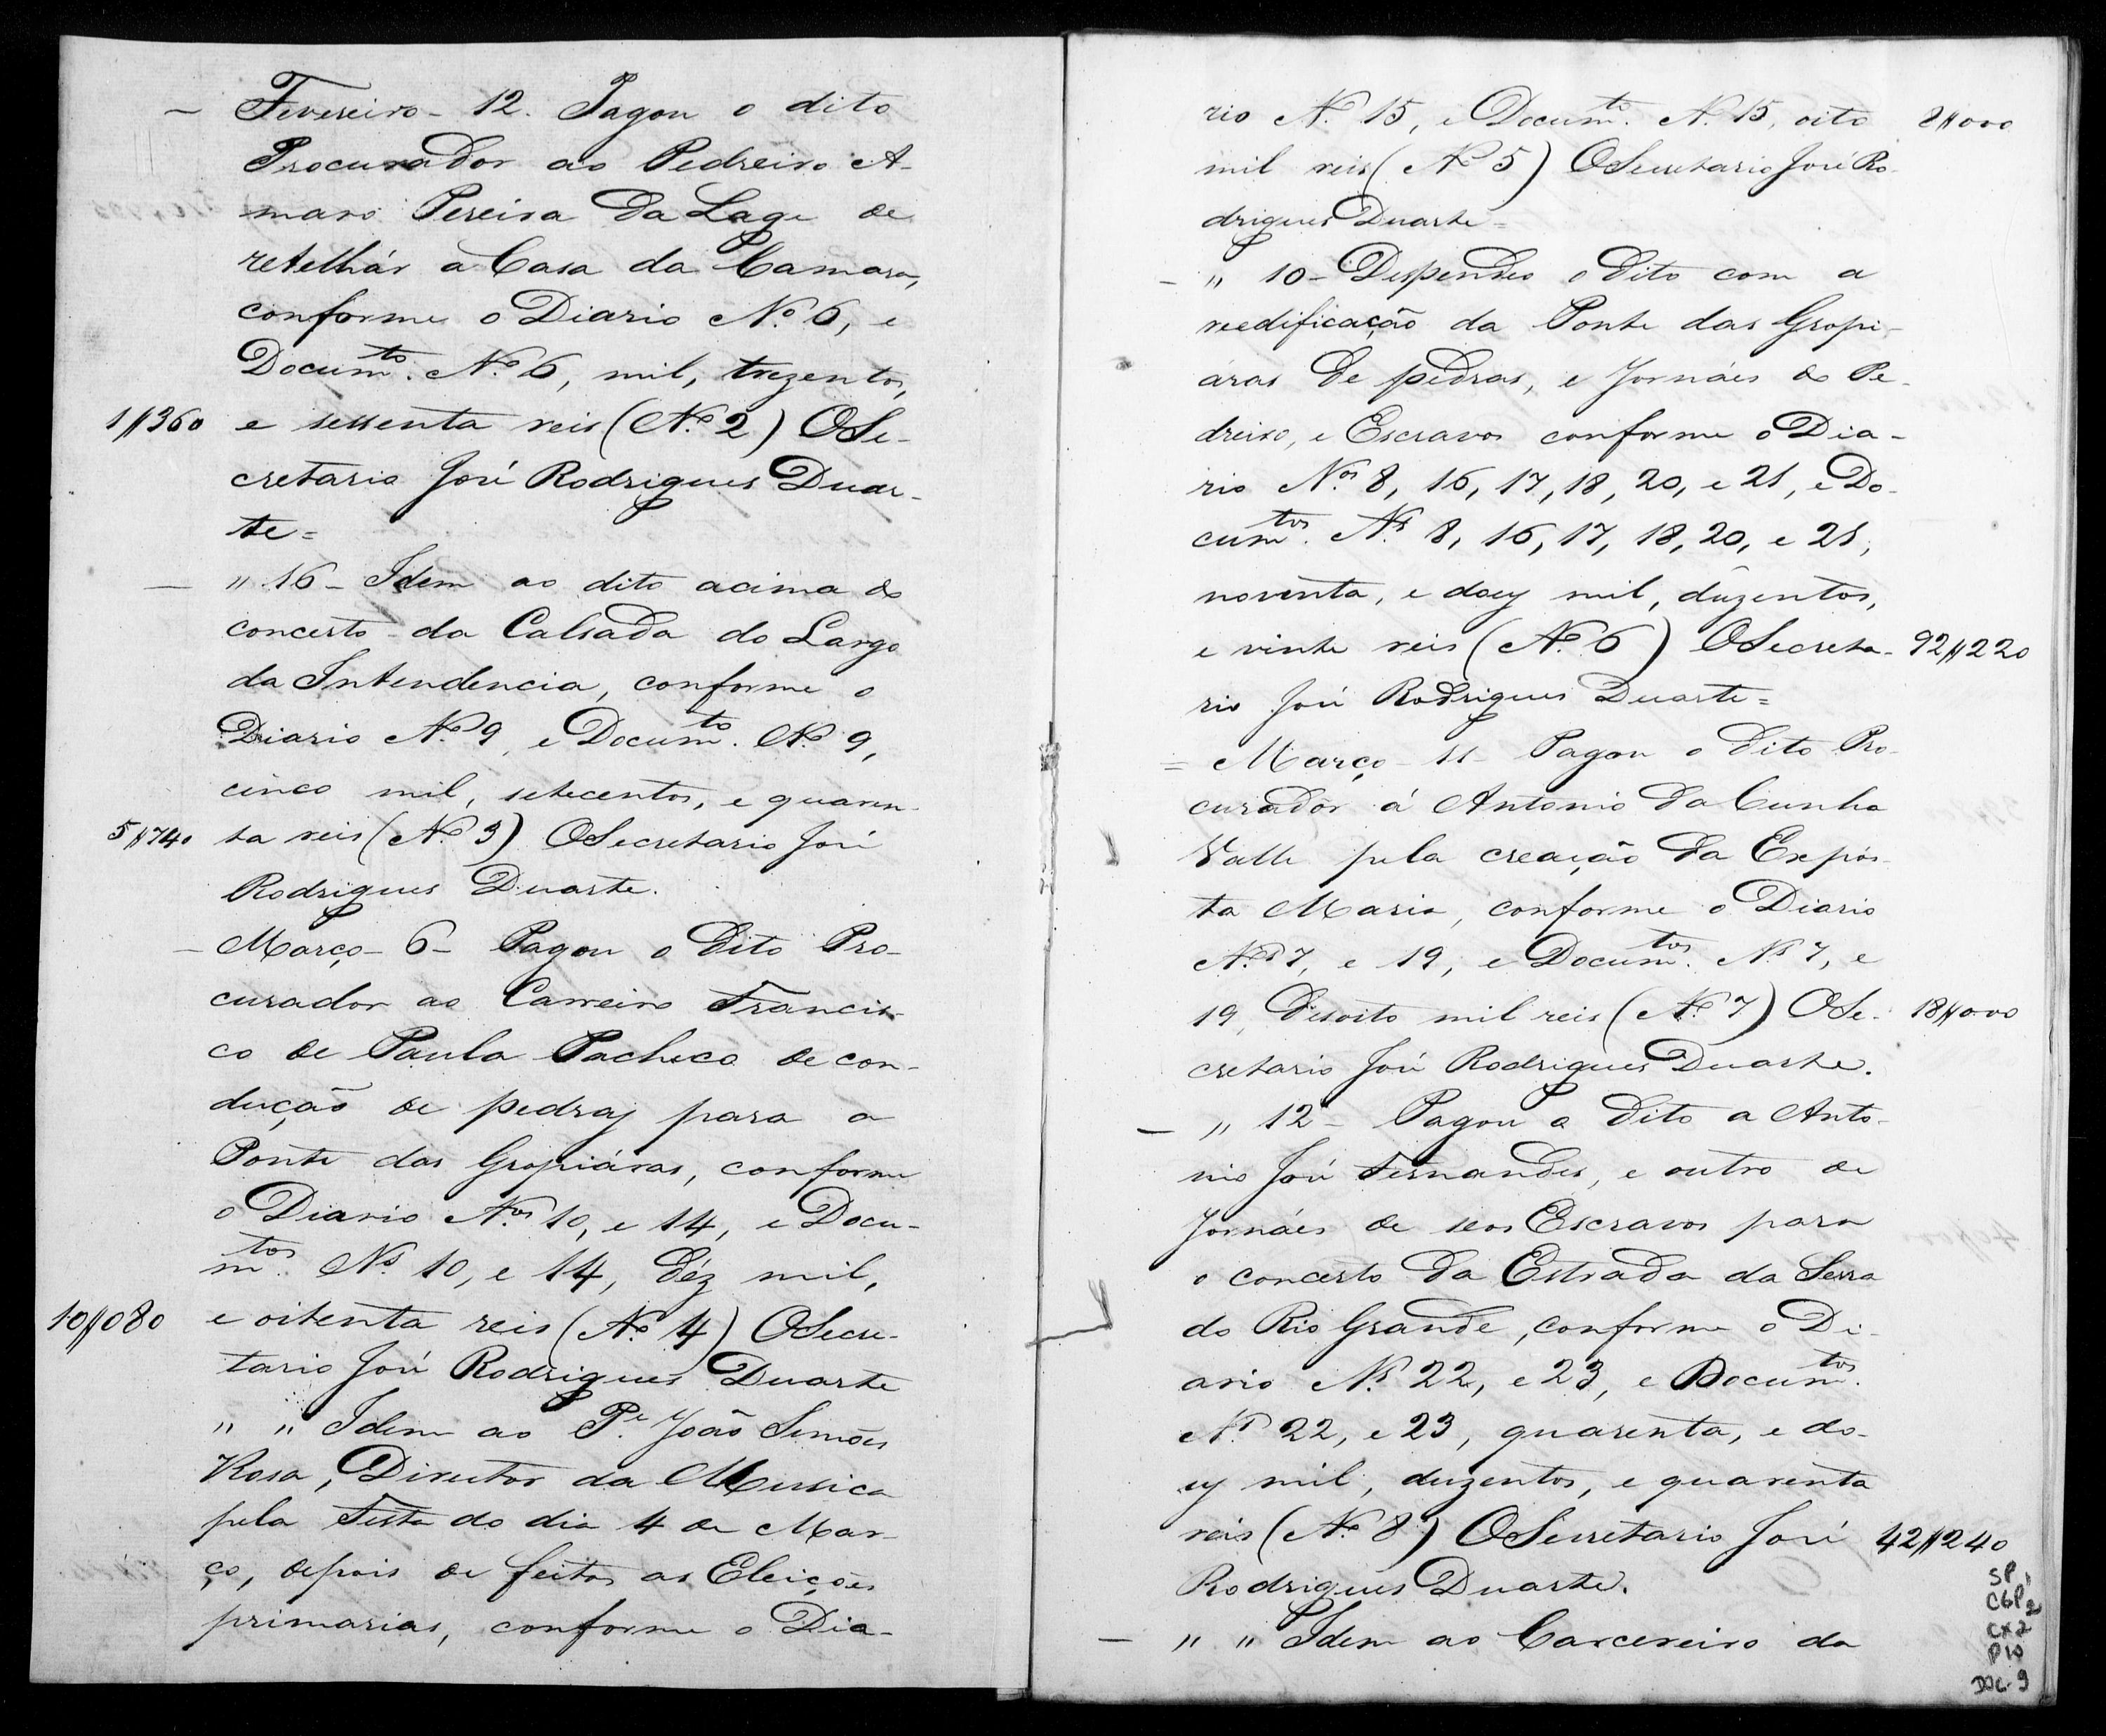 Fevereiro - 12. Pagou o dito
Procurador ao Pedreiro A-
maro Pereira da Lage de
retelhár a Casa da Camara,
conforme o Diario Nº 6, e
Documto. Nº 6, mil, trezentos,
1$360 e sessenta reis (Nº 2) O Se-
cretario José Rodrigues Duar-
te =
" 16 - Idem ao dito acima do
concerto da Calsada do Largo
da Intendencia, conforme o
Diario Nº 9, e Documto. Nº 9,
cinco mil, setecentos, e quaren-
5$740 ta reis (Nº 3) O Secretario José
Rodrigues Duarte.
- Março - 6 - Pagou o dito Pro-
curador ao Carreiro Francis-
co de Paula Pacheco de con-
dução de pedras para a
Ponte das Gropiáras, conforme
o Diario Nos 10, e 14, e Docu-
mtos. Ns 10, e 14, déz mil,
10$080 e oitenta reis (Nº 4) O Secre-
tario José Rodrigues Duarte
" " Idem ao Pe. João Simões
Rosa, Director da Musica
pela Festa do dia 4 de Mar-
ço, depois de feitas as Eleições
primarias, conforme o Dia-
rio Nº 15, e Documto. Nº 15, oito 8$000
mil reis (Nº 5) O Secretario José Ro-
drigues Duarte =
- " 10 - Despendeo o dito com a
reedificação da Ponte das Gropi-
áras de pedras, e Jornáes do Pe-
dreiro, e Escravos conforme o Dia-
rio Nos 8, 16, 17, 18, 20, e 21, e Do-
cumtos. Ns 8, 16, 17, 18, 20, e 21,
noventa, e does mil, duzentos,
e vinte reis (Nº 6) O Secreta- 92$220
rio José Rodrigues Duarte =
= Março - 11 - Pagou o dito Pro-
curador á Antonio da Cunha
Valle pela creação da Expós-
ta Maria, conforme o Diario
Nos 7, e 19, e Documtos. Ns 7, e
19, desoito mil reis (Nº 7) O Se- 18$000
cretario José Rodrigues Duarte.
- " 12 - Pagou o dito a Anto-
nio José Fernandes, e outro de
Jornáes de seos Escravos para
o concerto da Estrada da Serra
do Rio Grande, conforme o Di-
ario Ns 22, e 23, e Documtos.
Ns 22, e 23, quarenta, e do-
es mil, duzentos, e quarenta
reis (Nº 8) O Secretario José 42$240
Rodrigues Duarte.
- " " Idem ao Carcereiro da
SP
CGP2
CX2
P10
DOC. 9